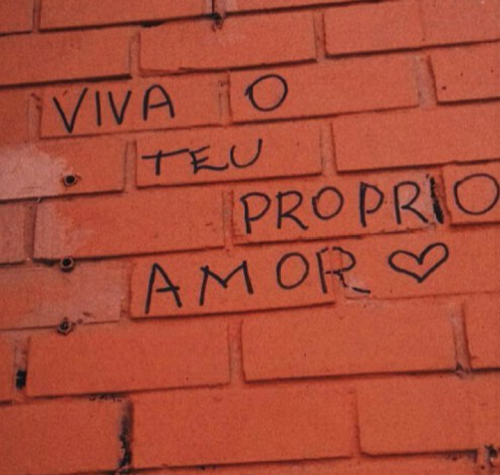 VIVA O
TEU
PROPRIO
AMOR ♡